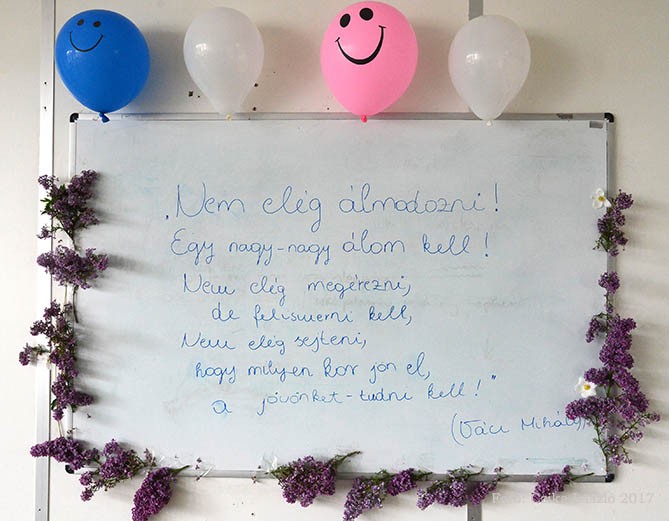 „Nem elég álmodozni!
Egy nagy-nagy álom kell!
Nem elég megérezni,
de felismerni kell,
Nem elég sejteni,
hogy milyen kor jön el,
a jövőnket-tudni kell!"
(Váci Mihály)
2017